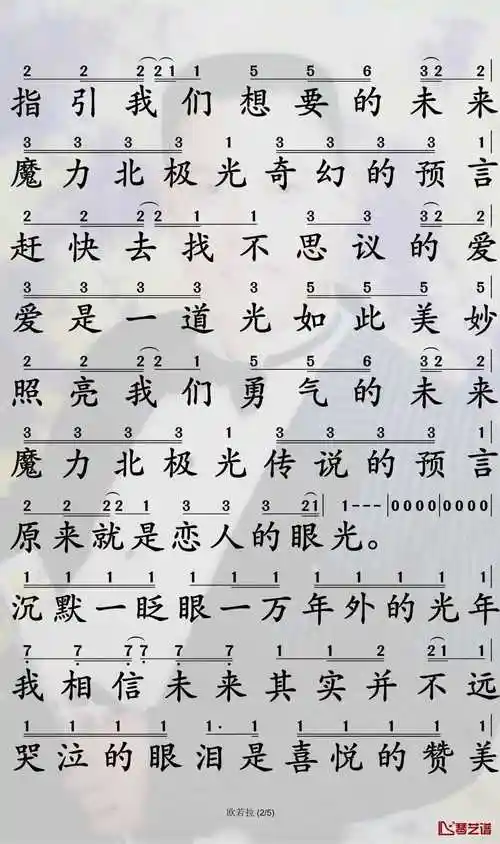 2 2 2 2 1 1 5 5 6 3 2 2|
指引我们想要的未来
3 3 3 3 1 3 3 3 3 1|
魔力北极光奇幻的预言
2 2 2 2 1 1 3 3 3 2 2|
赶快去找不思议的爱
3 3 3 3 3 5 5 5 5|
爱是一道光如此美妙
2 2 2 2 1 5 5 6 3 2 2|
照亮我们勇气的未来
3 3 3 3 1 3 3 3 3 1|
魔力北极光传说的预言
2 2 2 2 1 3 3 3 2 1| 1---|0000|0000|
原来就是恋人的眼光。
1 1 1 1 1 1 1 1 1 1 1|
沉默一眨眼一万年外的光年
7 7 7 7 7 7 1 1 2 2 1 1|
我相信未来其实并不远
1 1 1 1 1· 1 1 1 1 1 1|
哭泣的眼泪是喜悦的赞美
欧若拉 (2/5)
琴艺谱